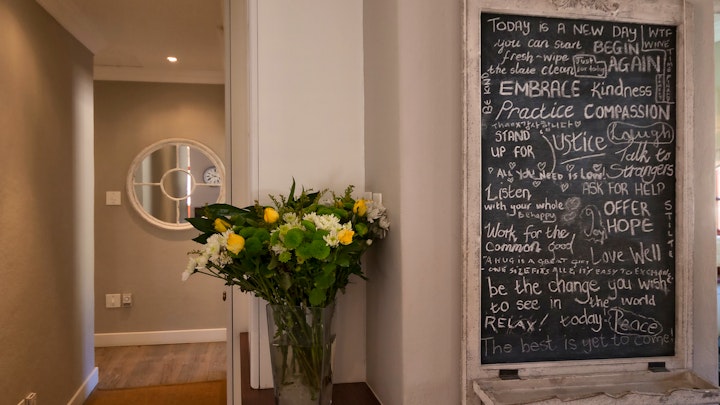 TODAY IS A NEW DAY
WTF
WINE
you can start BEGIN
fresh-wipe Just for today AGAIN
the slate clean
BE KIND
EMBRACE kindness
Practice COMPASSION
Thank 감사합니다
STAND JUSTICE Laugh
UP FOR
Talk to
Strangers
ALL YOU NEED IS LOVE!
ASK FOR HELP
Listen
with your whole
Be happy
Joy
OFFER
HOPE
STILL
Work for the
common good
Love Well
"A HUG IS A GREAT GIFT
ONE SIZE FITS ALL & IT'S EASY TO EXCHANGE
be the change you wish
to see in the world
RELAX! today! Peace
The best is yet to come!